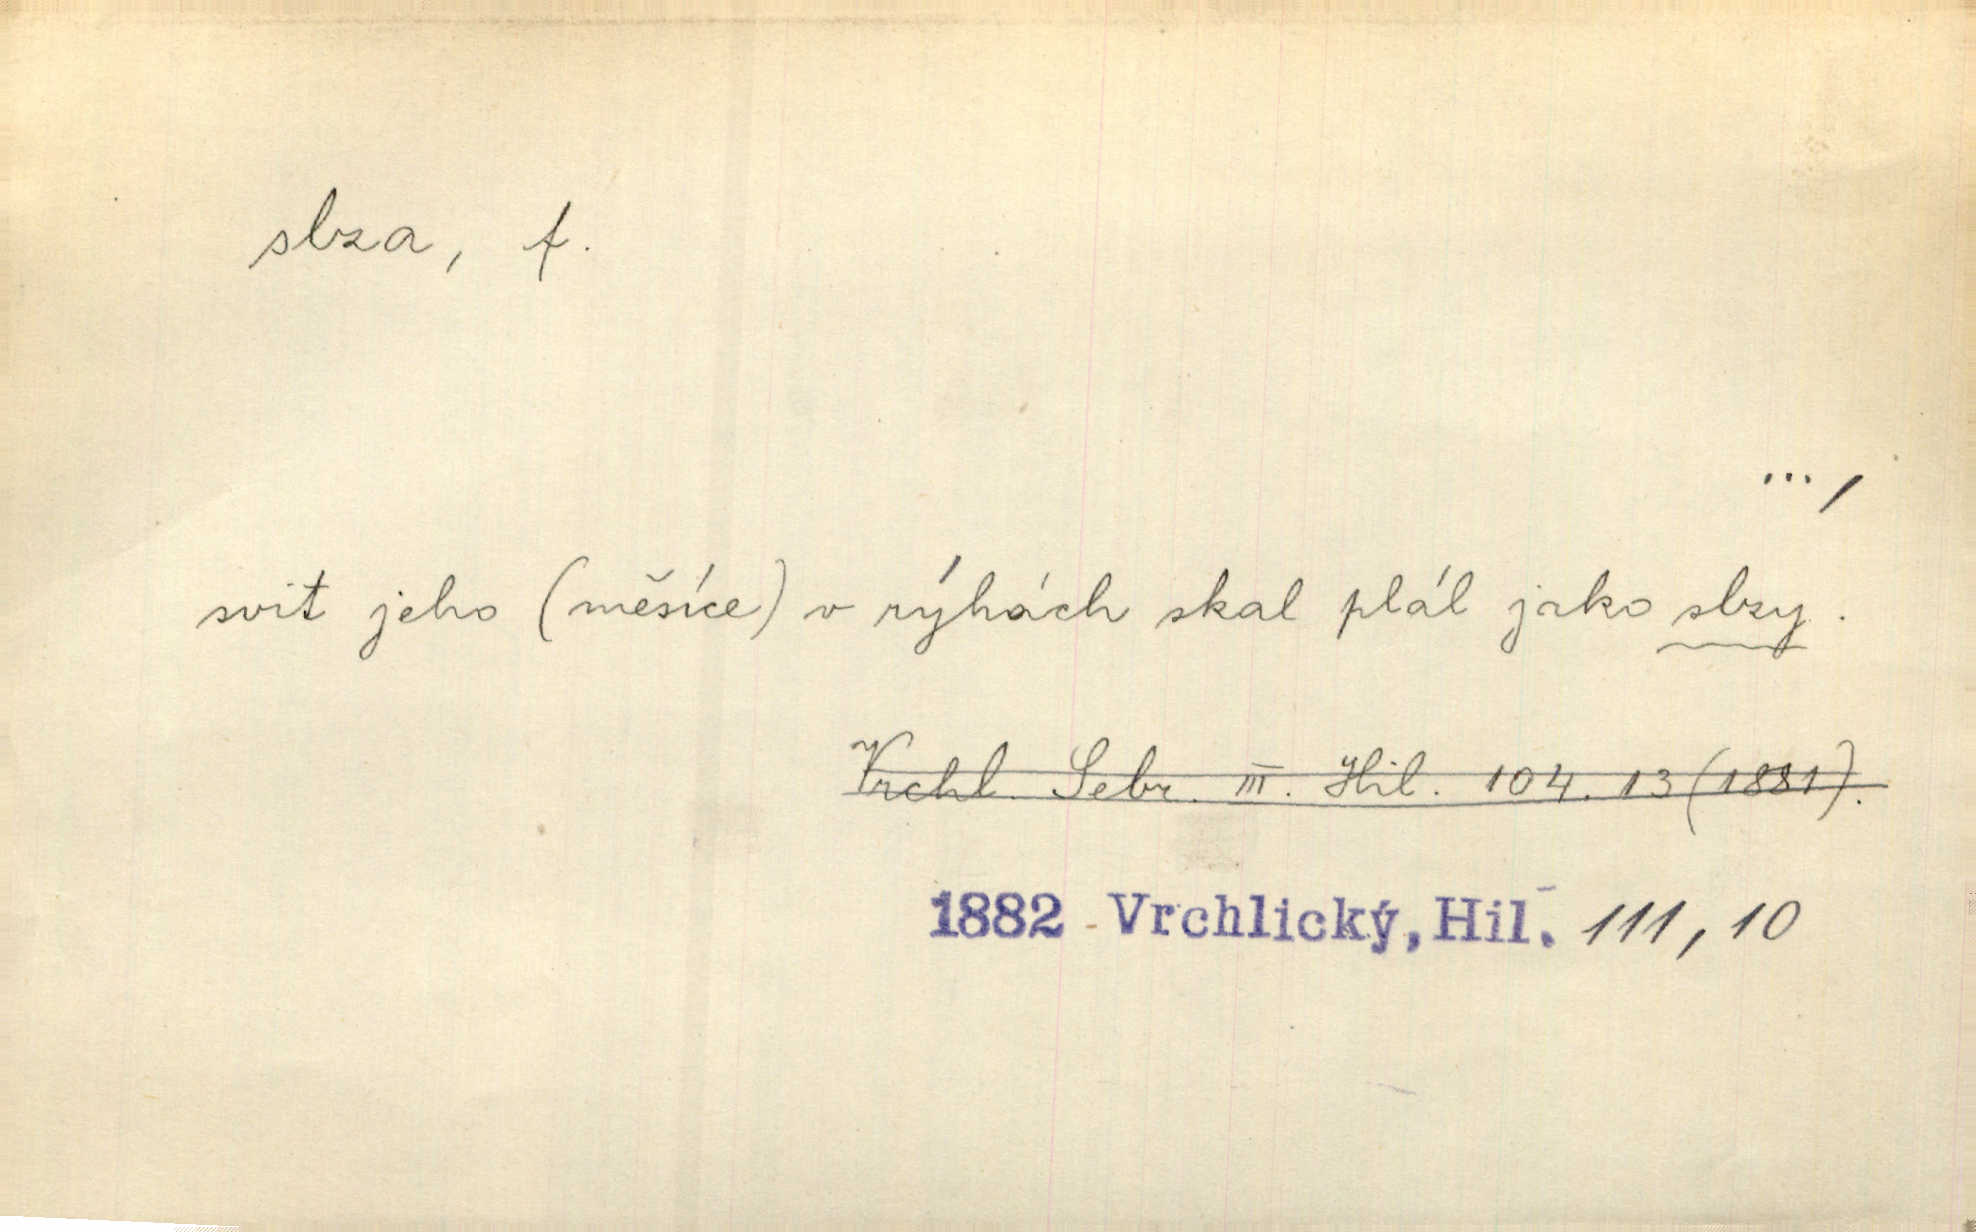 slza, f.
...,
svit jeho (měsíce) v rýhách skal plál jako slzy.
Vrchl. Sebr. III. Hil. 104. 13 (1881).
1882 - Vrchlický, Hil. 111, 10